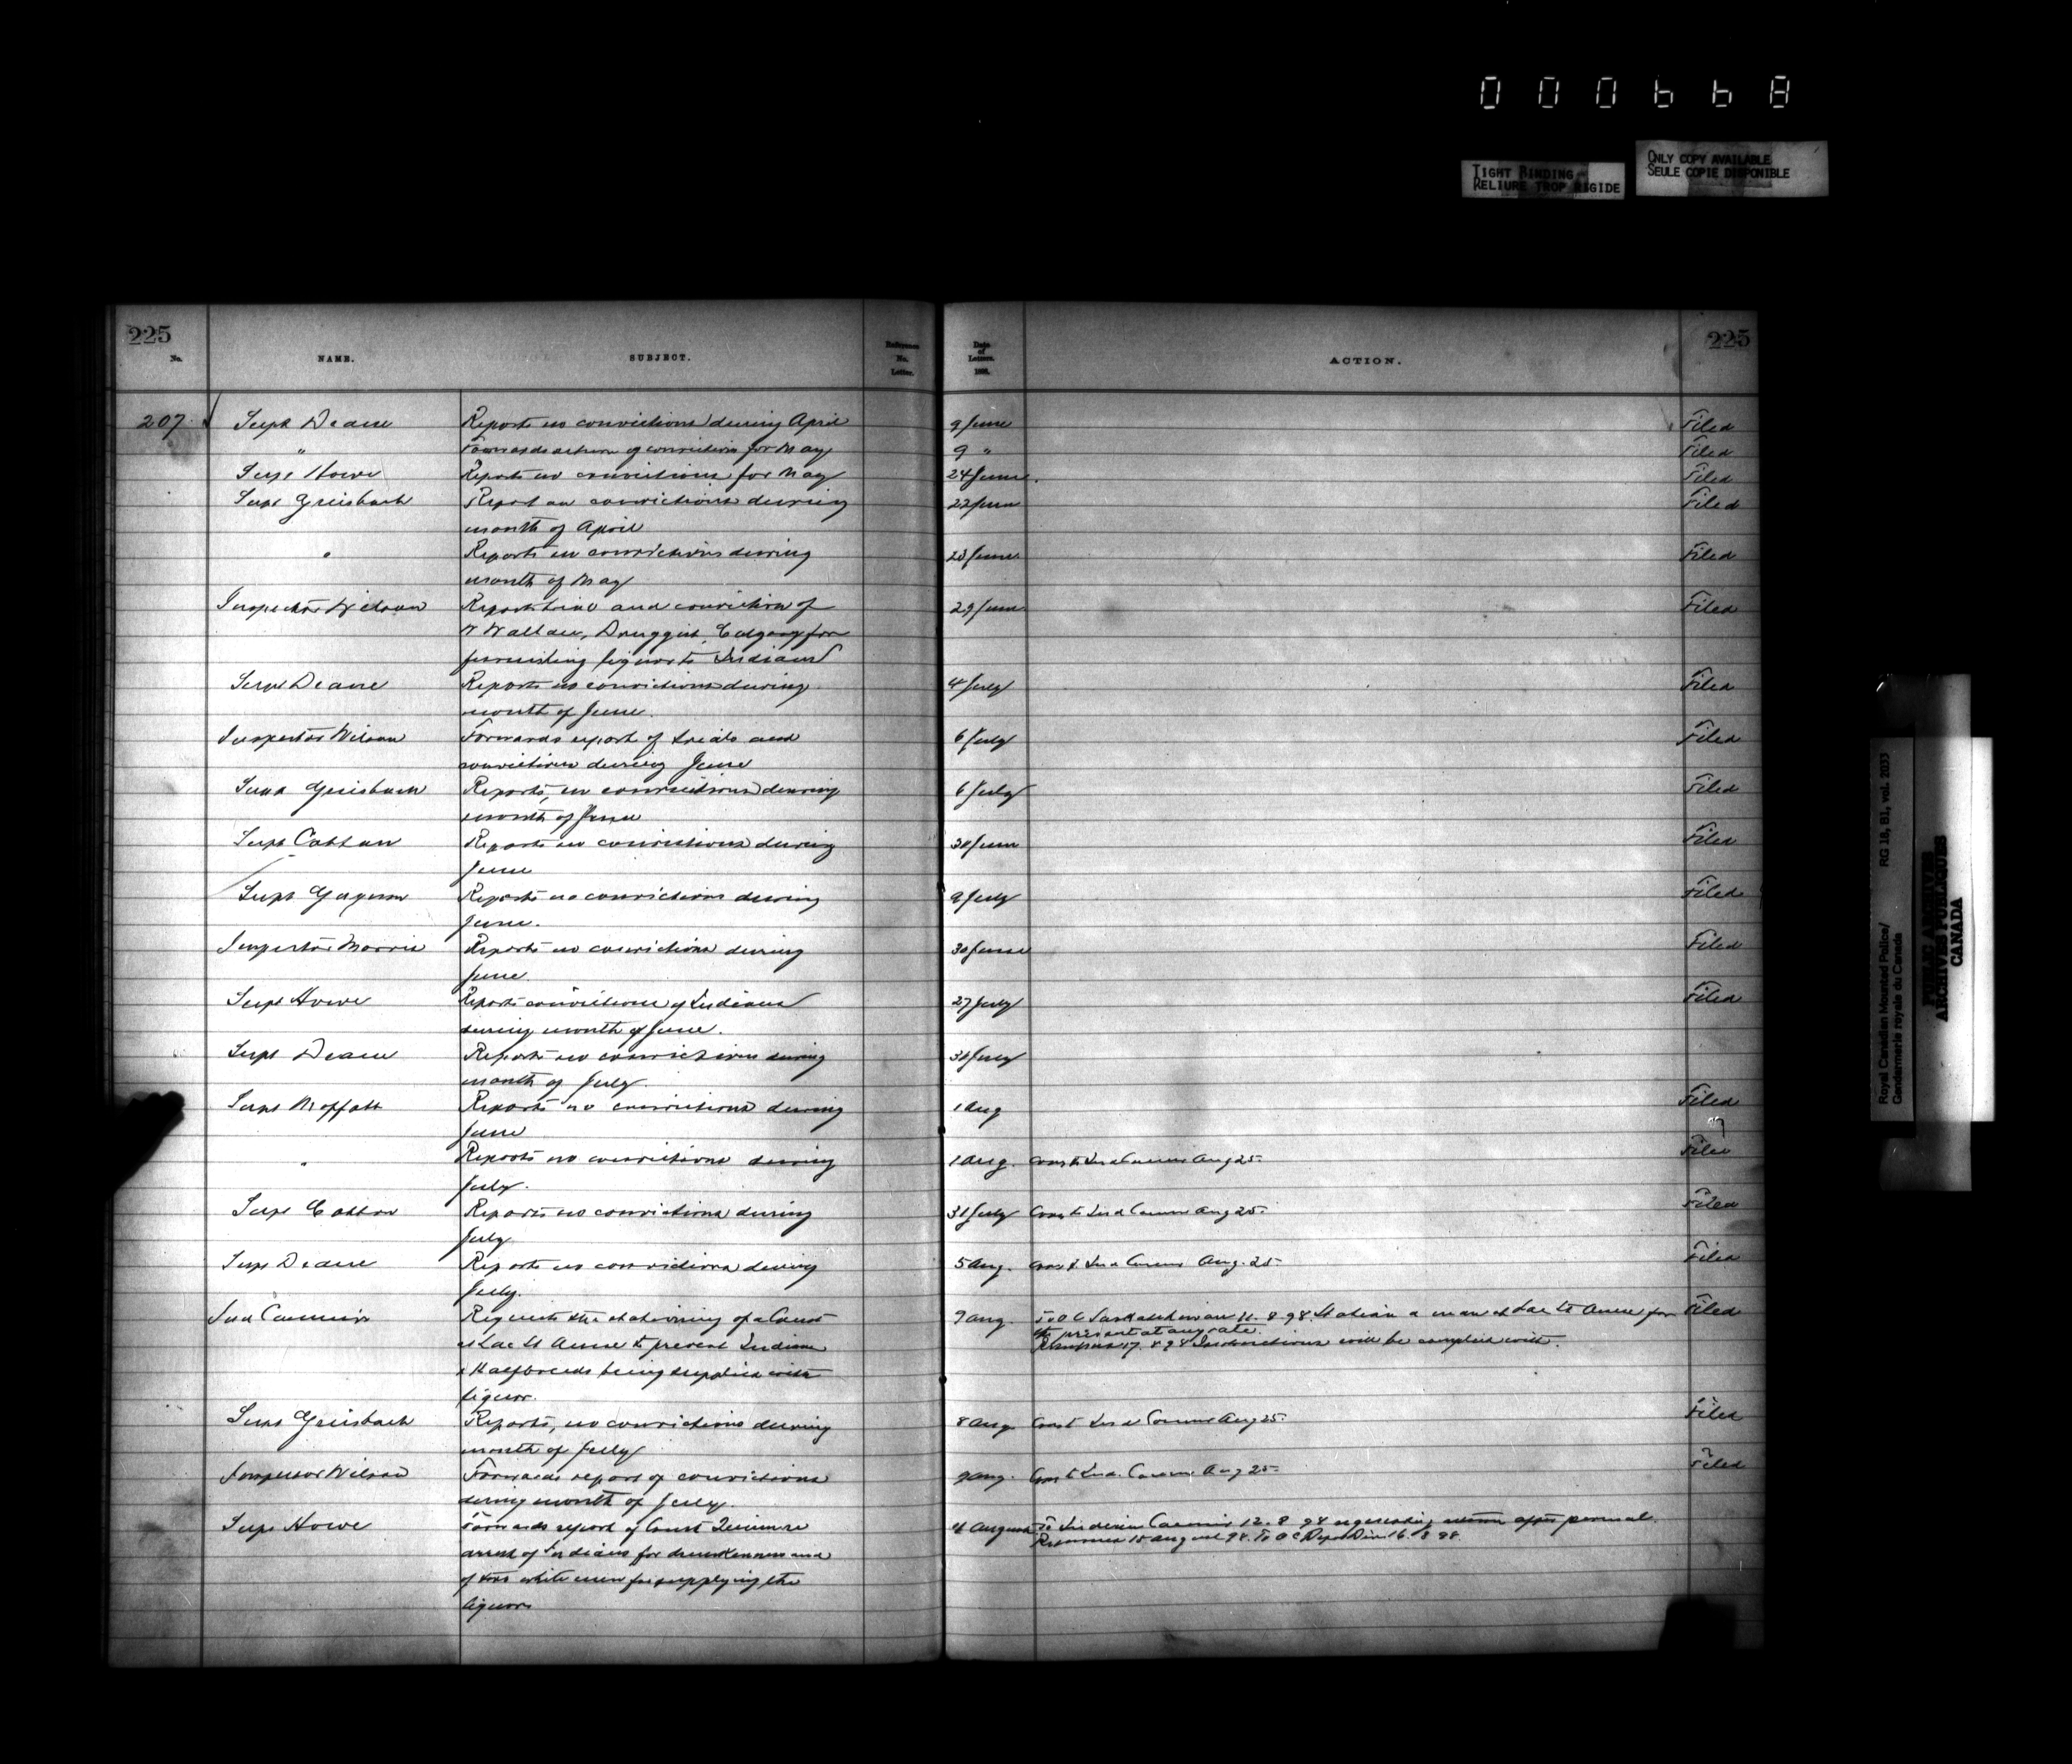 000668
TIGHT BINDING
RELIURE TROP RIGIDE
ONLY COPY AVAILABLE
SEULE COPIE DISPONIBLE
225
No. NAME. SUBJECT. Reference No. Letter. Date of Letters. 189 . ACTION.
225
207 Supt Deane Reports no convictions during April 9 June Filed
" Forwards return of convictions for May 9 " Filed
Supt Howe Reports no convictions for May 24 June. Filed
Supt Griesbach Report on convictions during 22 June Filed
month of April
" Reports no convictions during 23 June Filed
month of May
Inspector Wilson Reports trial and conviction of 29 June Filed
W Wallace, Druggist, Calgary for
furnishing liquor to Indians
Supt Deane Reports no convictions during 4 July Filed
month of June.
Inspector Wilson Forwards report of trials and 6 July Filed
convictions during June
Supt Griesbach Reports, no convictions during 6 July Filed
month of June
Supt Cotton Reports no convictions during 30 June Filed
June
Supt Gagnon Reports no convictions during 9 July Filed
June.
Inspector Morris Reports no convictions during 30 June Filed
June
Supt Howe Reports convictions of Indians 27 July Filed
during month of June.
Supt Deane Reports no convictions during 31 July
month of July.
Supt Moffatt Reports no convictions during 1 Aug Filed
June
" Reports no convictions during 1 Aug. Ind Comm Aug 25. Filed
July.
Supt Cotton Reports no convictions during 31 July Ind Comm Aug 25. Filed
July
Supt Deane Reports no convictions during 5 Aug. Ind Comm Aug. 25 Filed
July.
Ind Commr Requests the stationing of a Const 7 Aug. To O C Saskatchewan 11. 8. 98. Station a man at Lac St Anne for Filed
the present at any rate.
at Lac St Anne to prevent Indians 17. 8 98 Instructions will be complied with.
& Halfbreeds being supplied with
liquor.
Supt Griesbach Reports, no convictions during 8 Aug Ind Comm Aug 25. Filed
month of July
Inspector Wilson Forwards report of convictions 9 Aug. Ind. Comm Aug 25 Filed
during month of July.
Supt Howe Forwards report of Const August To Indian Commr 12. 8 98 requesting return after perusal.
Returned 15 August 98. To O C Depot Div 16. 8 98.
arrest of Indians for drunkenness and
of two white men for supplying the
liquor
Royal Canadian Mounted Police/ RG 18, B1, vol. 2033
Gendarmerie royale du Canada
PUBLIC ARCHIVES
ARCHIVES PUBLIQUES
CANADA